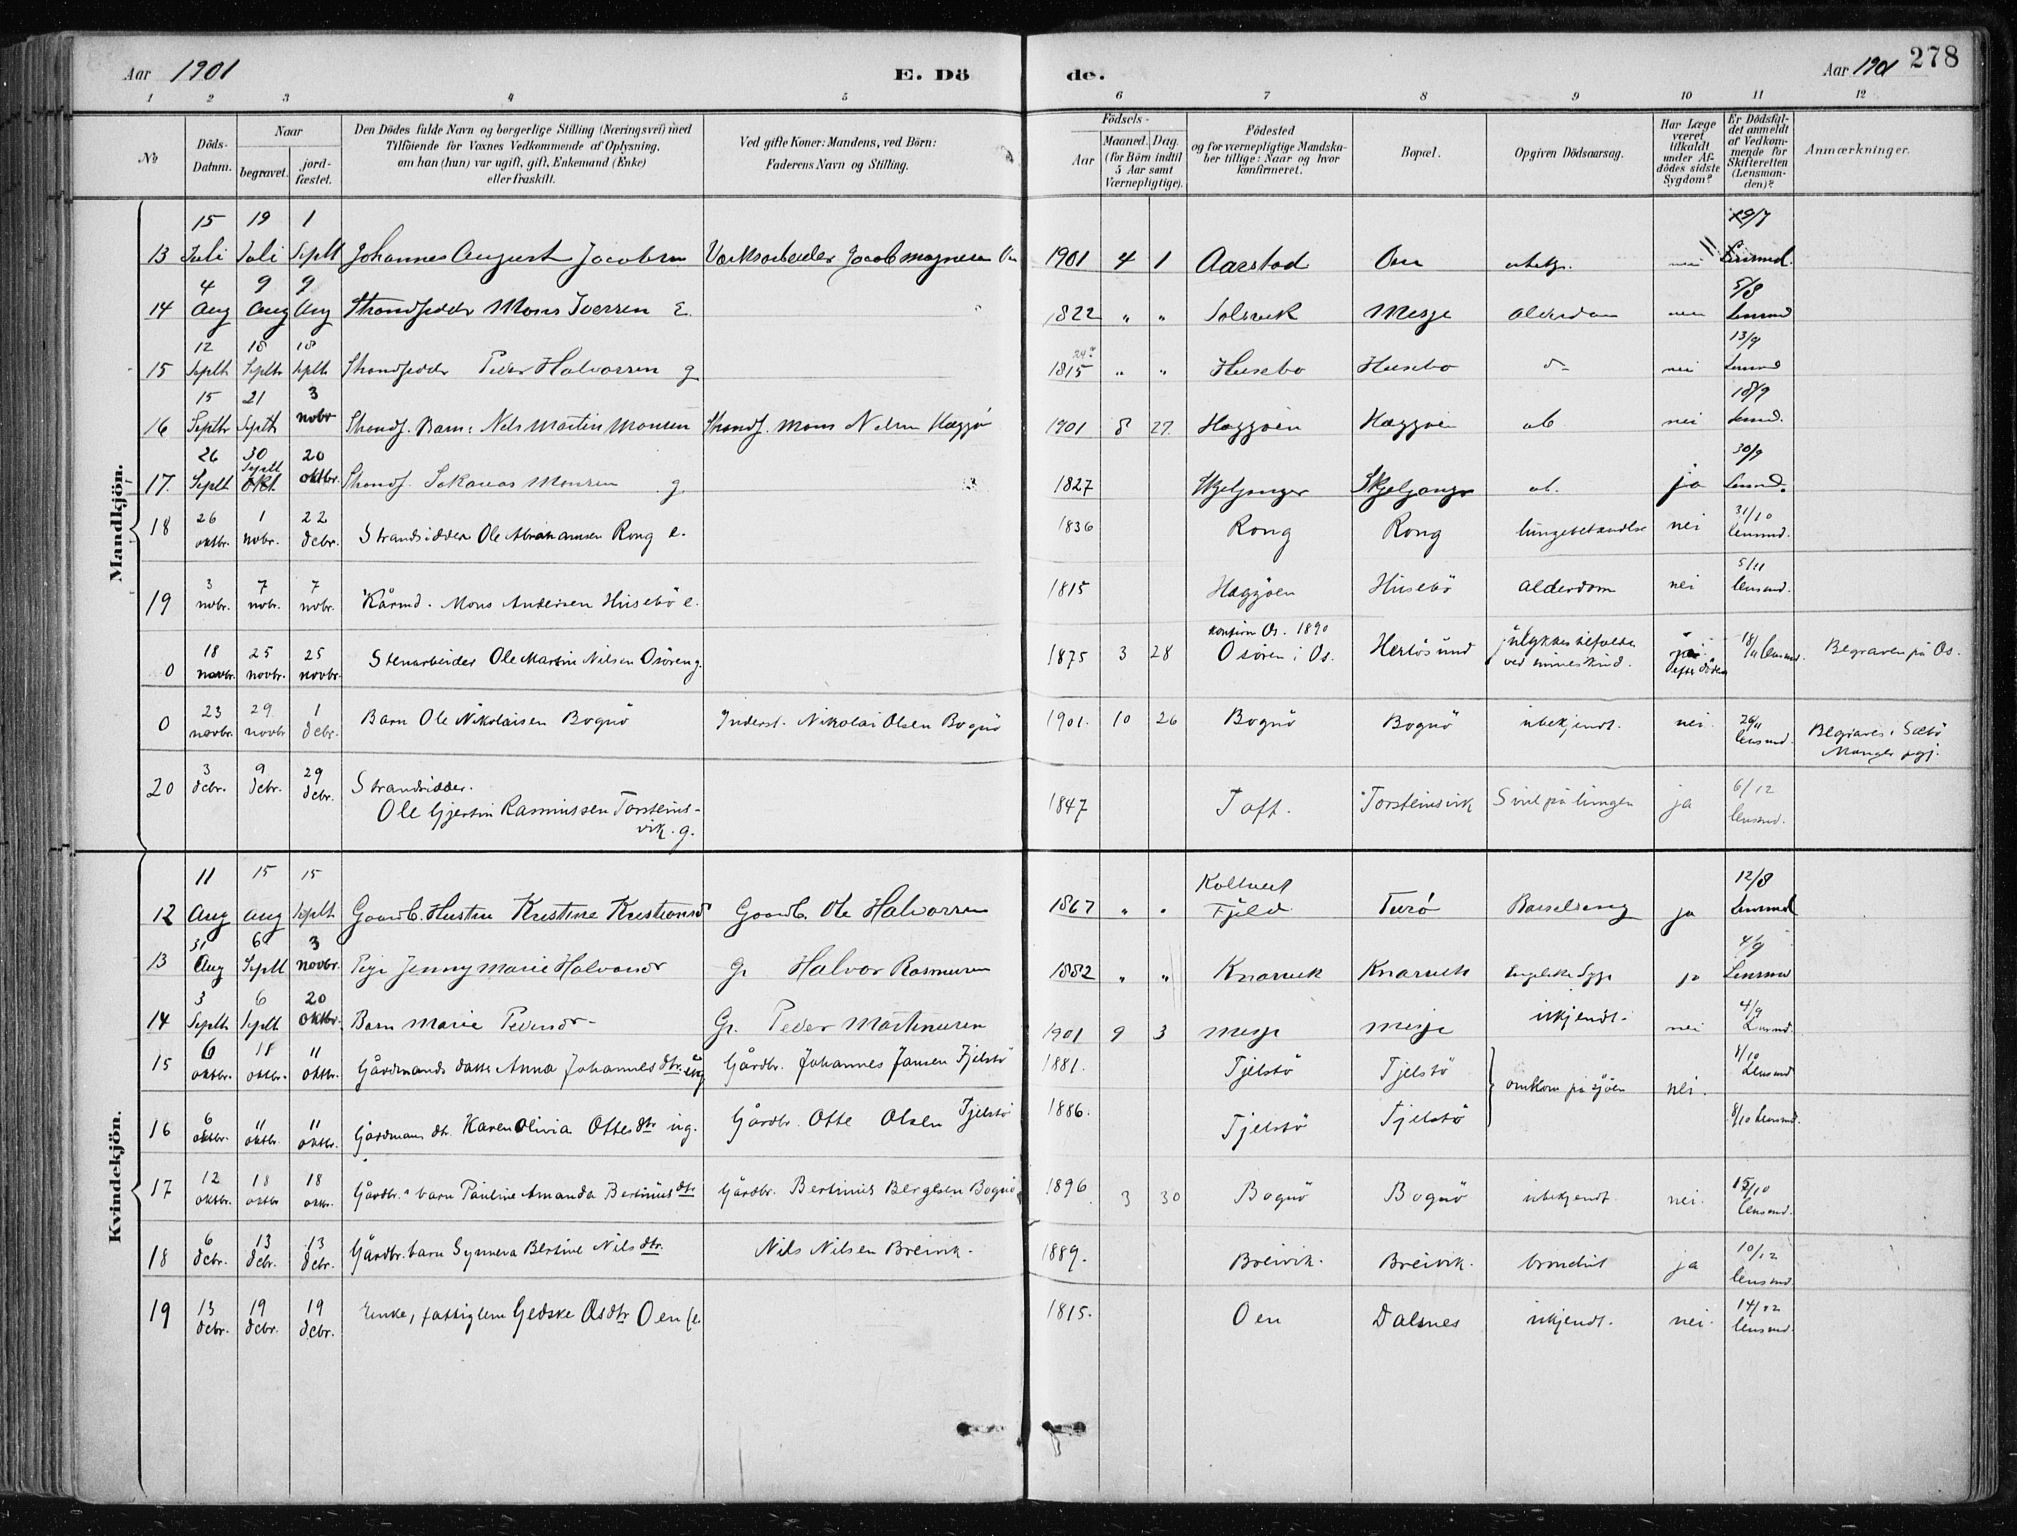 Aar 1901 E. Dö de. Aar 1901 278
1 2 3 4 5 6 7 8 9 10 11 12
No
Döds-Datum.
Naar begravet. jord-fæstet.
Den Dödes fulde Navn og borgerlige Stilling (Næringsvei) med
Tilföiende for Voxnes Vedkommende af Oplysning,
om han (hun) var ugift, gift, Enkemand (Enke)
eller fraskilt.
Ved gifte Koner: Mandens, ved Börn:
Faderens Navn og Stilling.
Födsels-
Aar Maaned. Dag.
(for Börn indtil
5 Aar samt
Værnepligtige).
Födested
og for værnepligtige Mandska-
ber tillige: Naar og hvor
konfirmeret.
Bopæl.
Opgiven Dödsaarsag.
Har Læge
været
tilkaldt
under Af-
dödes sidste
Sygdom?
Er Dödsfal-
det anmeldt
af Vedkom-
mende for
Skifteretten
(Lensman-
den)?
Anmærkninger.
Mandkjön.
13 15 Juli 19 Juli 1 Septt Johannes August Jacobsen 1901 4 1 Aarstad nei
14 4 Aug 9 Aug 9 Aug Strandsidder Mons Iversen E. 1822 " " Solsvik Misje Alderdom nei 5/8 Lensmd
15 12 Septb 18 Septb 18 Septb Strandsidder Peder Halvorsen g 1815 " " Husebø Husebø nei 13/9 Lensmd
16 15 Septbr 21 Septb 3 novbr Strands. Barn: Nils Martin Monsen Strands. Mons Nilsen Hæggø 1901 8 27 Hæggøen Hæggøen nei 18/9 Lensmd.
17. 26 Septb 30 Septb 20 oktbr. Strands. Monsen g. 1827 Skjeljanger Skjeljanger ja 30/9 Lensmd.
18 26 oktbr. 1 novbr. 22 debr. Strandsidder Ole Abrahamsen Rong e. 1836 Rong Rong lungebetændelse nei 31/10 lensmd.
19 3 novbr. 7 novbr. 7 novbr. Kårmd. Mons Andersen Husebö e. 1815 Hæggöen Husebö alderdom nei 5/11 lensmd.
0 18 novbr. 25 novbr. 25 novbr. Stenarbeider Ole Martin Nilsen Osören g. 1875 3 28 konfirm Os. 1890 Osören i Os. Herlösund ved mineskud. efter döden 18/11 lensmd. Begraven på Os.
0 23 novbr. 29 novbr 1 debr. Barn Ole Nikolaisen Bognö Inderst. Nikolai Olsen Bognö 1901. 10 26 Bognö Bognö ubekjendt. nei. 26/11 lensmd. Begraves i Sæbö
Manger pgj.
20 3 debr. 9 debr. 29 debr. Strandsidder.
Ole Gjertin Rasmussen Torsteins-
vik. g. 1847 Toft. Torsteinsvik Svul på lungen ja 6/12 lensmd.
Kvindekjön.
12 11 Aug 15 Aug 15 Septb Gaardb. Hustru Kristine Kristiansd Gaardb. Ole Halvorsen 1867 " " Koltveit
Fjeld Turö Barselseng ja 12/8 Lensmd
13 31 Aug 6 Septb 3 novbr. Pige Jenny Marie Halvorsdr G. Halvor Rasmusen 1882 " " Knarvik Knarvik Engelske Syge ja 4/9 Lensmd
14 3 Septb 6 Septb 20 oktbr. Barn Marie Pedersdr G. Peder Martinusen 1901 9 3 Misje Misje ukjendt. nei 4/9 Lensmd.
15 6 oktbr. 18 oktbr. 11 oktbr. Gårdmands datter Anna Johannesdtr. ug Gårdbr. Johannes Jansen Tjelstö 1881. Tjelstö Tjelstö omkom på sjöen nei. 8/10 Lensmd
16 6 oktbr. 11 oktbr. 11 oktbr. Gårdmans dtr. Karen Olivia Ottesdtr ug. Gårdbr. Otte Olsen Tjelstö 1886. Tjelstö Tjelstö 8/10 Lensmd.
17 12 oktbr. 18 oktbr 18 oktbr. Gårdbr.s barn Pauline Amanda Bertinusdtr Gårdbr. Bertinus Bergesen Bognö 1896 3 30 Bognö Bognö ubekjendt. nei. 15/10 lensmd.
18 6 debr. 13 debr. 13 debr. Gårdbr. barn Synneva Bertine Nilsdtr. Nils Nilsen Breivik. 1889. Breivik. Breivik. brondkit ja 10/12 lensmd.
19 13 debr. 19 debr. 19 debr. Enke, fattiglem Gjedske Asdtr Oen (e. 1815. Oen Dalsnes ukjendt. nei. 14/12 lensmd.